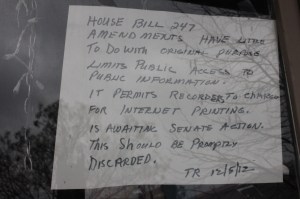 HOUSE BILL 247
AMENDMENTS HAVE LITTLE
TO DO WITH ORIGINAL PURPOSE
LIMITS PUBLIC ACCESS TO
PUBLIC INFORMATION.
IT PERMITS RECORDERS TO CHARGE
FOR INTERNET PRINTING.
IS AWAITING SENATE ACTION.
THIS SHOULD BE PROMPTLY
DISCARDED.
TR 12/5/12